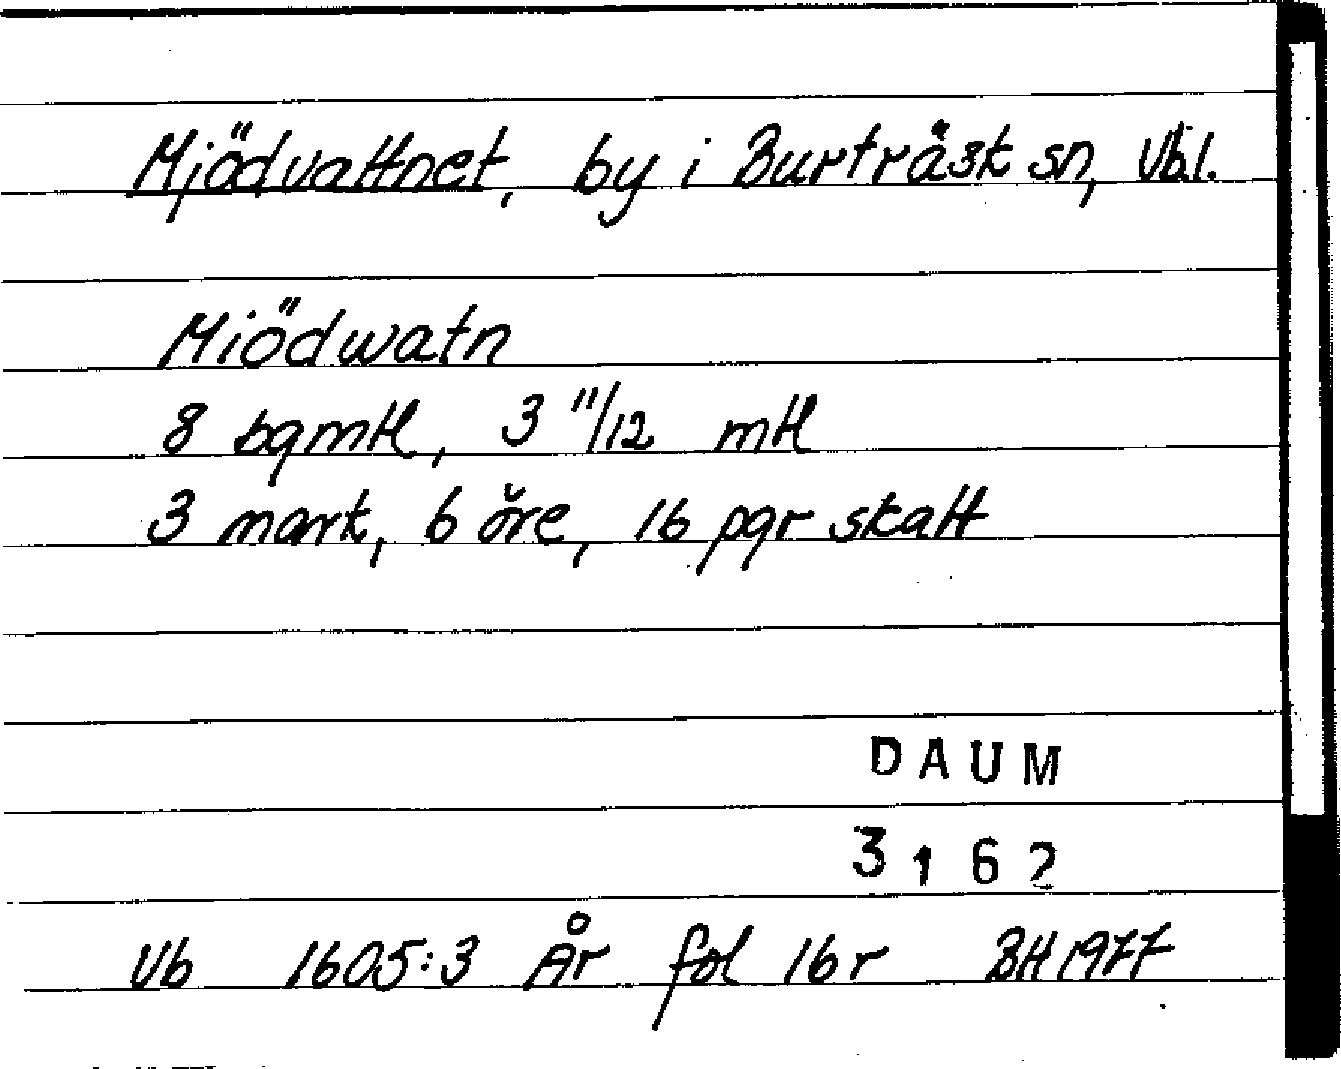 Mjödvattnet, by i Burträsk sn, Vbl.
Miödwatn
8 bqmtl, 3 11/12 mtl
3 mark, 6 öre, 16 pgr skatt
DAUM
3162
Vb 1605:3 År fol 16r BH 1977